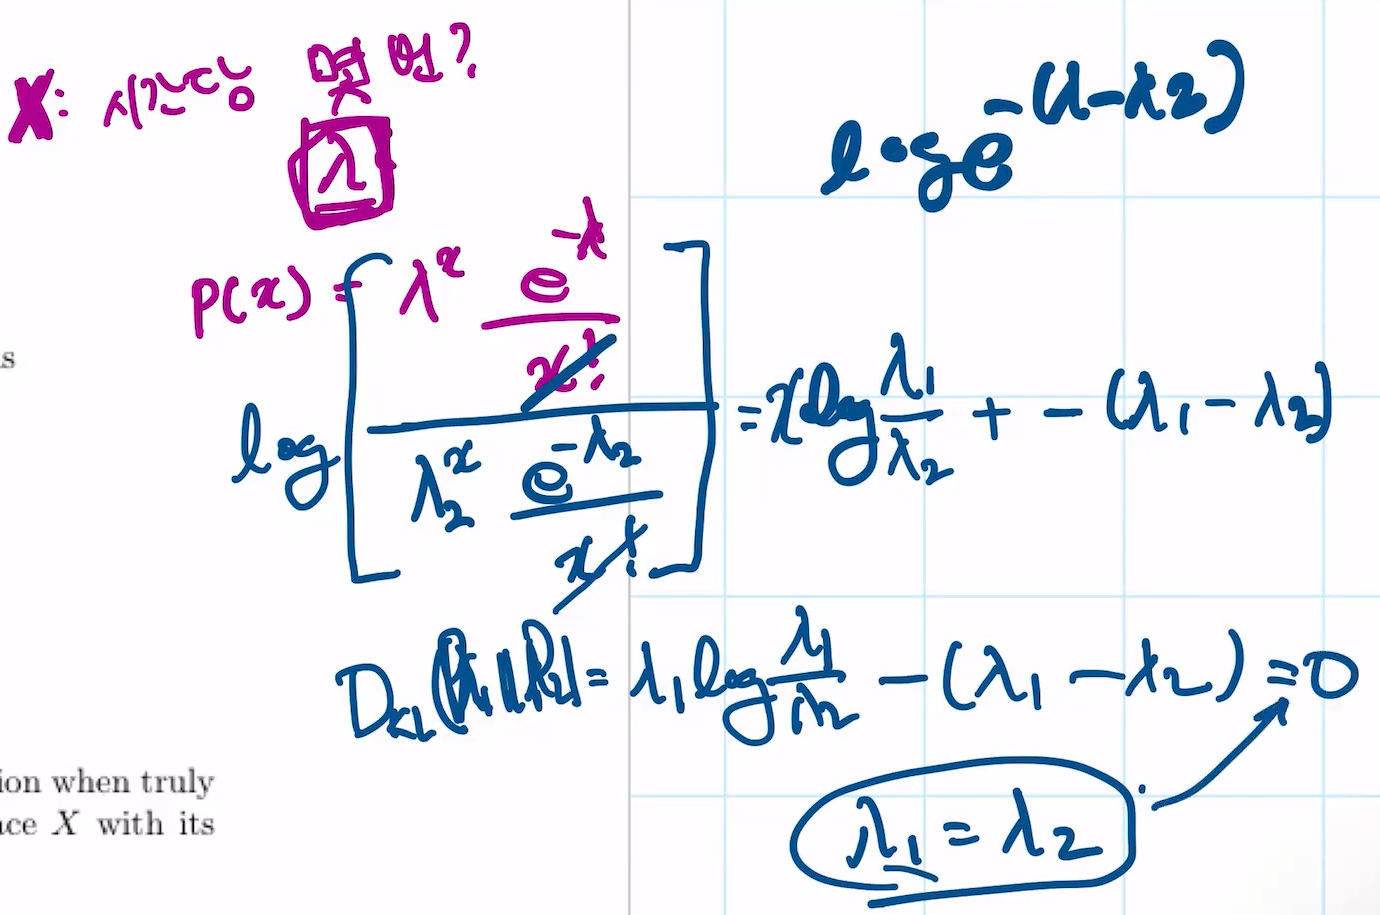 X: 시간당 몇 번?
λ
log e^{-(λ-λ2)}
P(x) = λ^x e^{-λ} / x!
log [ λ^x e^{-λ} / x! / λ2^x e^{-λ2} / x! ] = x log λ1/λ2 + -(λ1 - λ2)
s
D_{KL}(P1 || P2) = λ1 log λ1/λ2 - (λ1 - λ2) = 0
ion when truly
ace X with its
λ1 = λ2